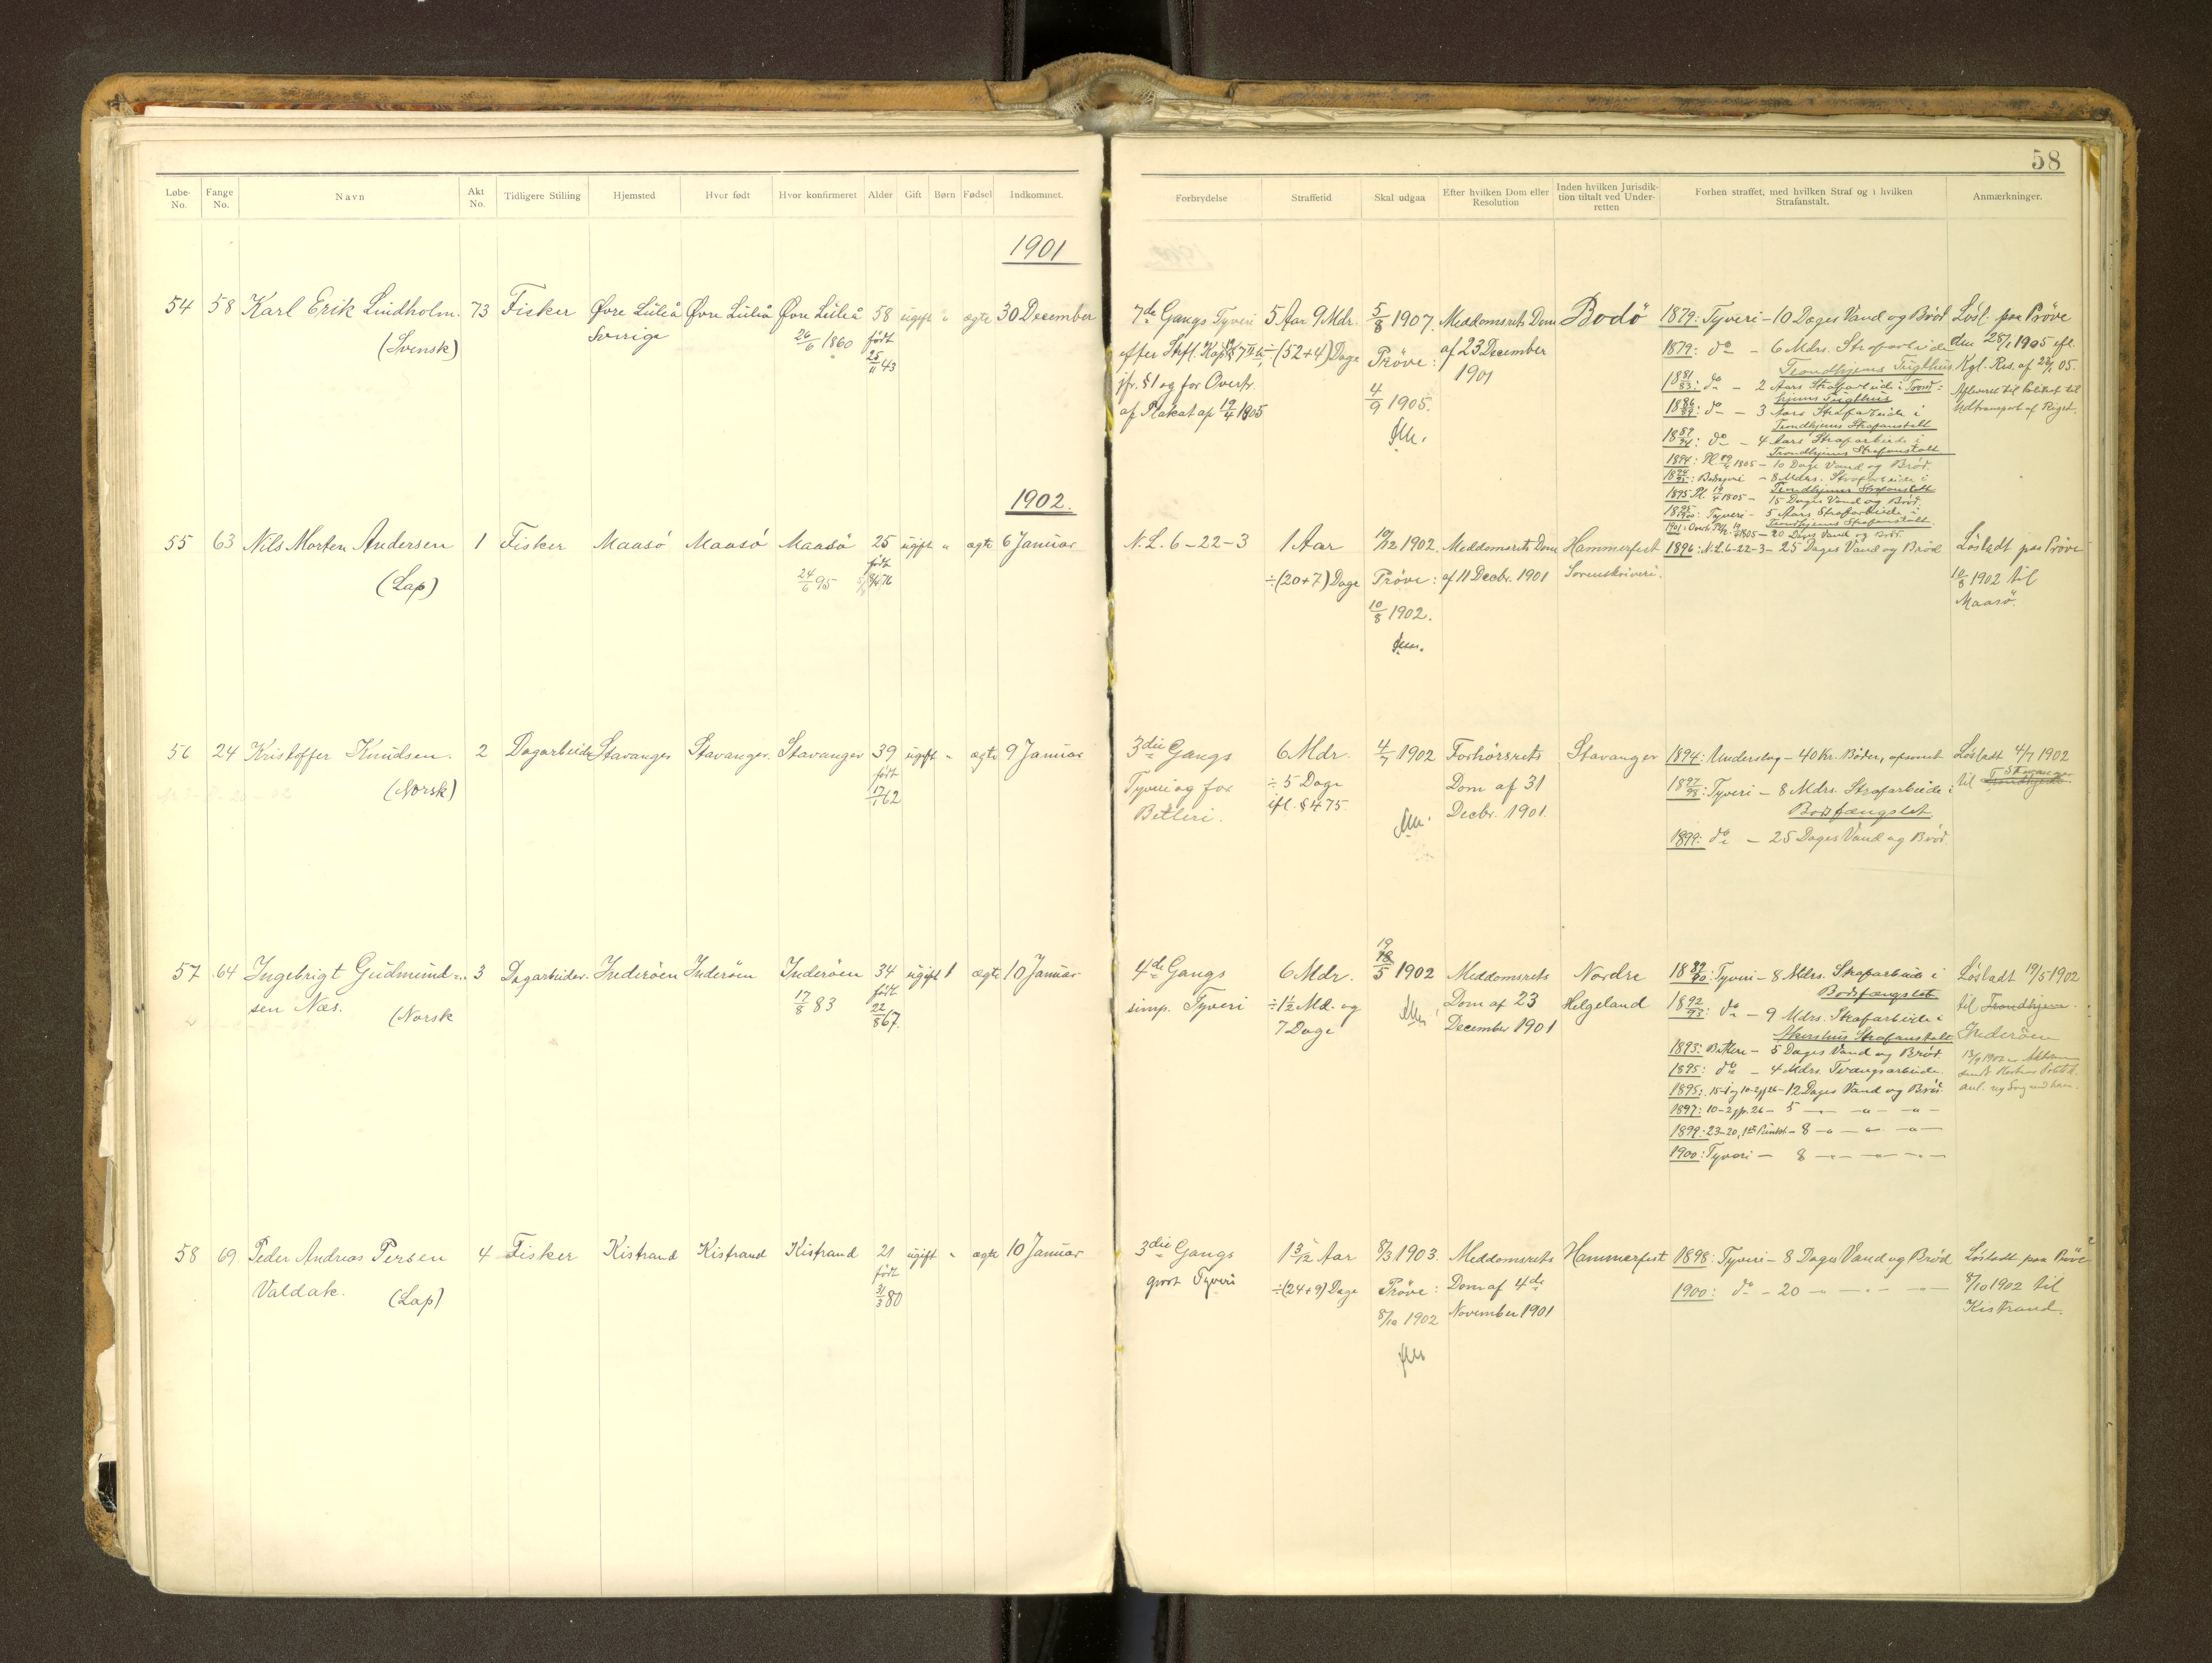 58
Løbe-No.
Fange No.
Navn
Akt No.
Tidligere Stilling
Hjemsted
Hvor født
Hvor konfirmeret
Alder
Gift
Børn
Fødsel
Indkommet.
Forbrydelse
Straffetid
Skal udgaa
Efter hvilken Dom eller Resolution
Inden hvilken Jurisdiktion tiltalt ved Underretten
Forhen straffet, med hvilken Straf og i hvilken Strafanstalt.
Anmærkninger.
1901
54 58 Karl Erik Lindholm. 73 Fisker Øvre Luleå Øvre Luleå Øvre Luleå 58 ugift " ægte 30 December
(Svensk) Sverrige 26/6 1860 født
25/11 43
7de Gangs Tyveri 5 Aar 9 Mdr. 5/8 1907. Meddomsrets Dom Bodö
÷(52+4) Dage Prøve: af 23 December
jfr. §1 og for Overtr. 4/9 1905. 1901
af Plakat af 19/4 1805
1879: Tyveri - 10 Dages Vand og Brød
1879: do - 6 Mdrs. Strafarbeide
Trondhjems Tugthus
1881/83: do - 2 Aars Strafarbeide i Trond-
hjems Tugthus
1886/89: do - 3 Aars Strafarbeide i
Trondhjems Strafanstalt
do - 4 Aars Strafarbeide i
Trondhjems Strafanstalt
1894: Pl. 19/4 1805 - 10 Dage Vand og Brød.
8 Mdrs. Strafarbeide i
Trondhjems Strafanstalt
1895 Pl. 19/4 1805 - 15 Dages Vand og Brød.
Tyveri - 5 Aars Strafarbeide i
Trondhjems Strafanstalt.
20 Dages Vand og Brød.
Løsl. paa Prøve
den 28/1 1905 ifl.
Kgl. Res. af
Afleveret til Politiet til
Udtransport af Riget.
1902.
55 63 Nils Morten Andersen 1 Fisker Maasö Maasö Maasö 25 ugift " ægte 6 Januar
(Lap) 24/6 95 født
N.L. 6-22-3 1 Aar 10/12 1902. Meddomsrets Dom Hammerfest
÷(20+7) Dage Prøve: af 11 Decbr. 1901 Sorenskriveri.
10/8 1902.
1896: N.L. 6-22-3 - 25 Dages Vand og Brød
Løsladt paa Prøve
10/8 1902 til
Maasö.
56 24 Kristoffer Knudsen. 2 Dagarbeider Stavanger Stavanger. Stavanger 39 ugift " ægte 9 Januar
(Norsk) født
17/1 62
3die Gangs 6 Mdr. 4/7 1902 Forhørsrets Stavanger
Tyveri og for ÷ 5 Dage Dom af 31
Betleri. ifl. § 475. Decbr. 1901.
1894: Underslag - 40 Kr. Bøder, afsonet
1897/98: Tyveri - 8 Mdrs. Strafarbeide i
Bodsfængslet.
1899: do - 25 Dages Vand og Brød.
Løsladt 4/7 1902
til Trondhjem. Stavanger
57 64 Ingebrigt Gudmund- 3 Dagarbeider. Inderöen Inderöen Inderöen 34 ugift 1 ægte 10 Januar
sen Næs. (Norsk 17/8 83 født
22/8 67.
4de Gangs 6 Mdr. 19/5 1902 Meddomsrets Nordre
simp. Tyveri ÷1½ Md. og Dom af 23 Helgeland
7 Dage December 1901
1889/90: Tyveri - 8 Mdrs. Strafarbeide i
Bodsfængslet
1892/93: do - 9 Mdrs. Strafarbeide i
Akershus Strafanstalt
1893: Betleri - 5 Dages Vand og Brød.
1895: do - 4 Mdrs. Tvangsarbeide.
12 Dages Vand og Brød.
1897: 10-2 jfr. 26 - 5 — " — " —
8 — " — " — " —
1900: Tyveri - 8 — " — " — " —
Løsladt 19/5 1902
til Trondhjem.
Inderöen
58 69. Peder Andreas Persen 4 Fisker Kistrand Kistrand Kistrand 21 ugift " ægte 10 Januar
Valdak. (Lap) født
31/3 80
3die Gangs 1 3/12 Aar 8/3 1903. Meddomsrets Hammerfest
grovt Tyveri ÷(24+9) Dage Prøve: Dom af 4de
8/10 1902 November 1901
1898: Tyveri - 8 Dages Vand og Brød
1900: do - 20 — " — " — " —
Løsladt paa Prøve
8/10 1902 til
Kistrand.